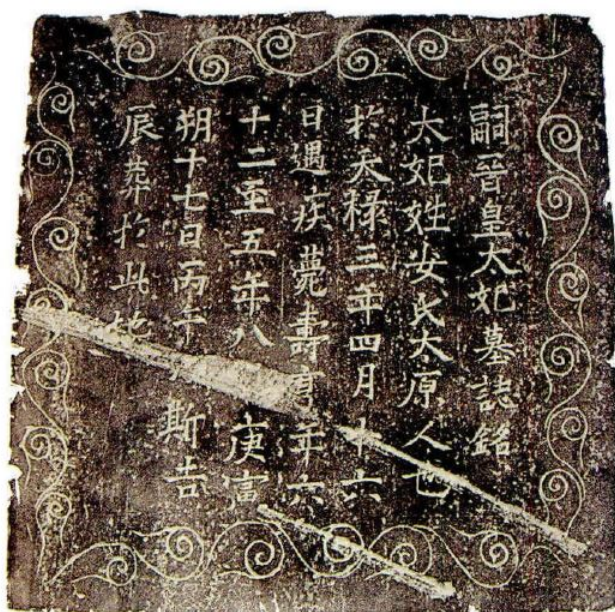 嗣晉皇太妃墓誌銘
太妃姓安氏太原人也
扵天祿三年四月十六
日遇疾薨壽享年六
十二至五年八庚寅
朔十七日丙午斯吉
辰葬扵此地